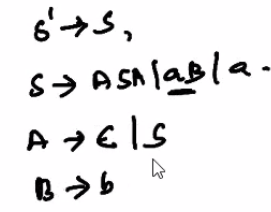 S' → S,
S → ASA | aB | a.
A → ε | S
B → b